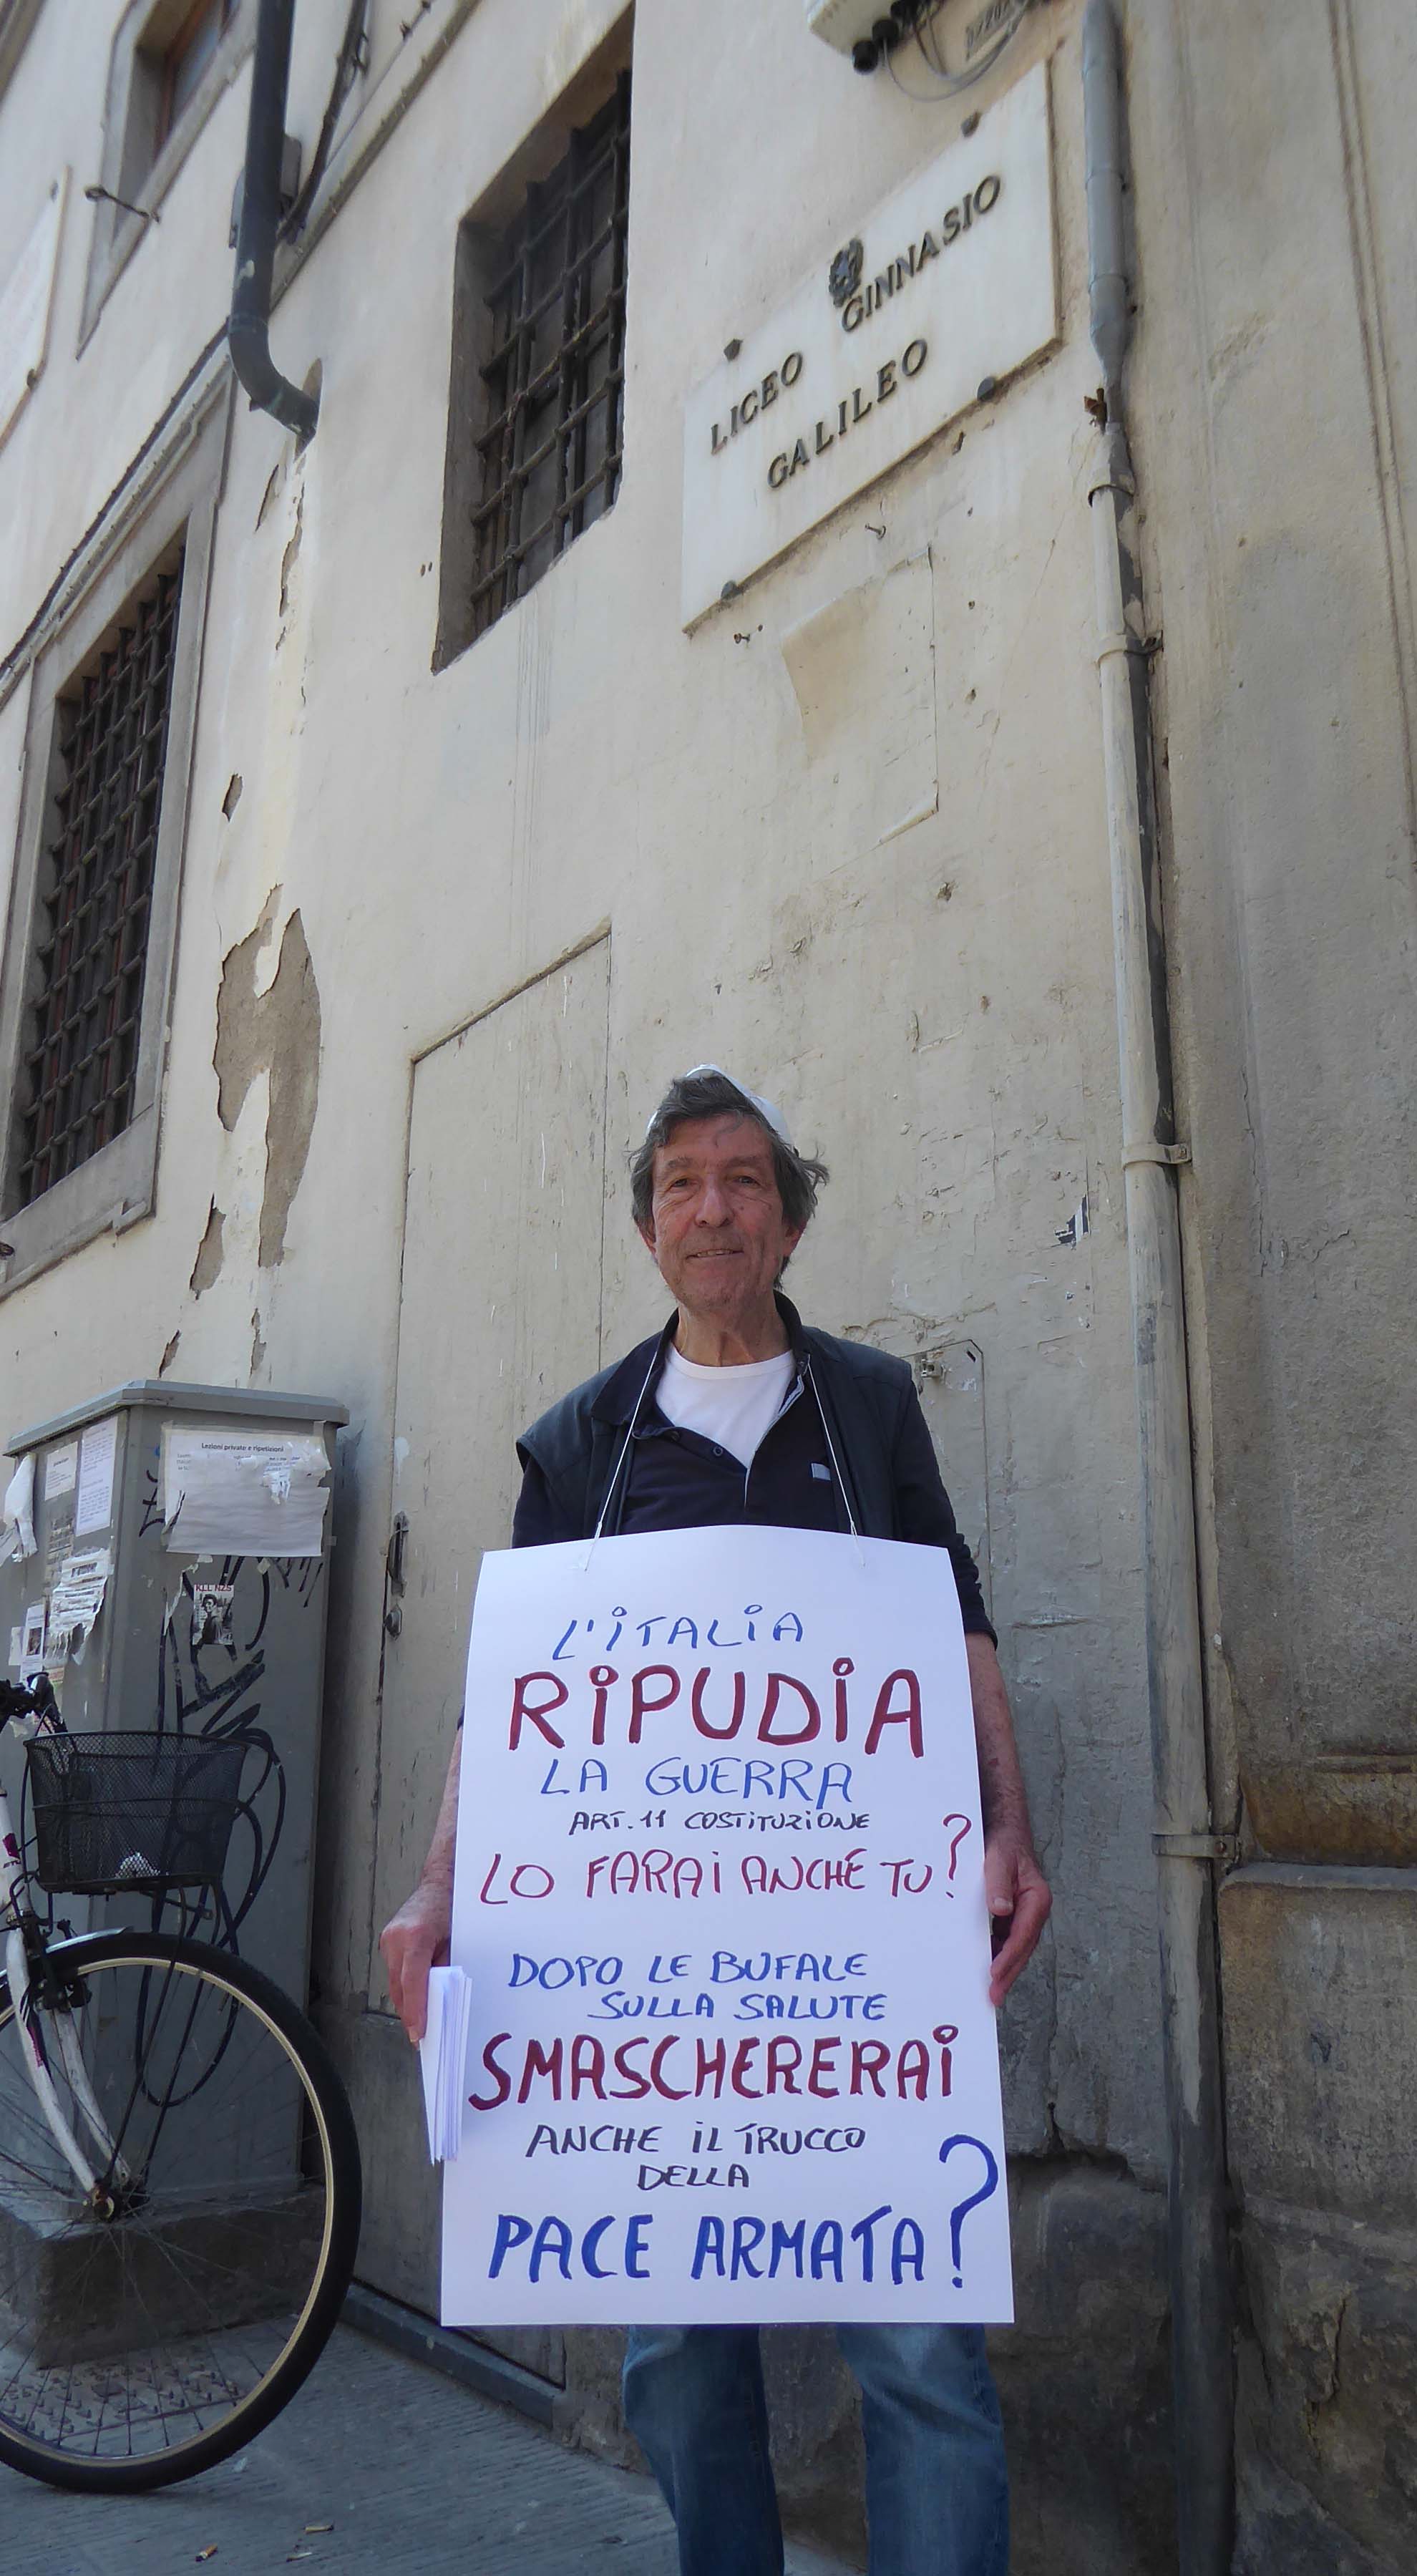 LICEO GINNASIO
GALILEO
Lezioni private e ripetizioni
L'ITALIA
RIPUDIA
LA GUERRA
ART. 11 COSTITUZIONE
LO FARAI ANCHE TU?
DOPO LE BUFALE
SULLA SALUTE
SMASCHERERAI
ANCHE IL TRUCCO
DELLA
PACE ARMATA?